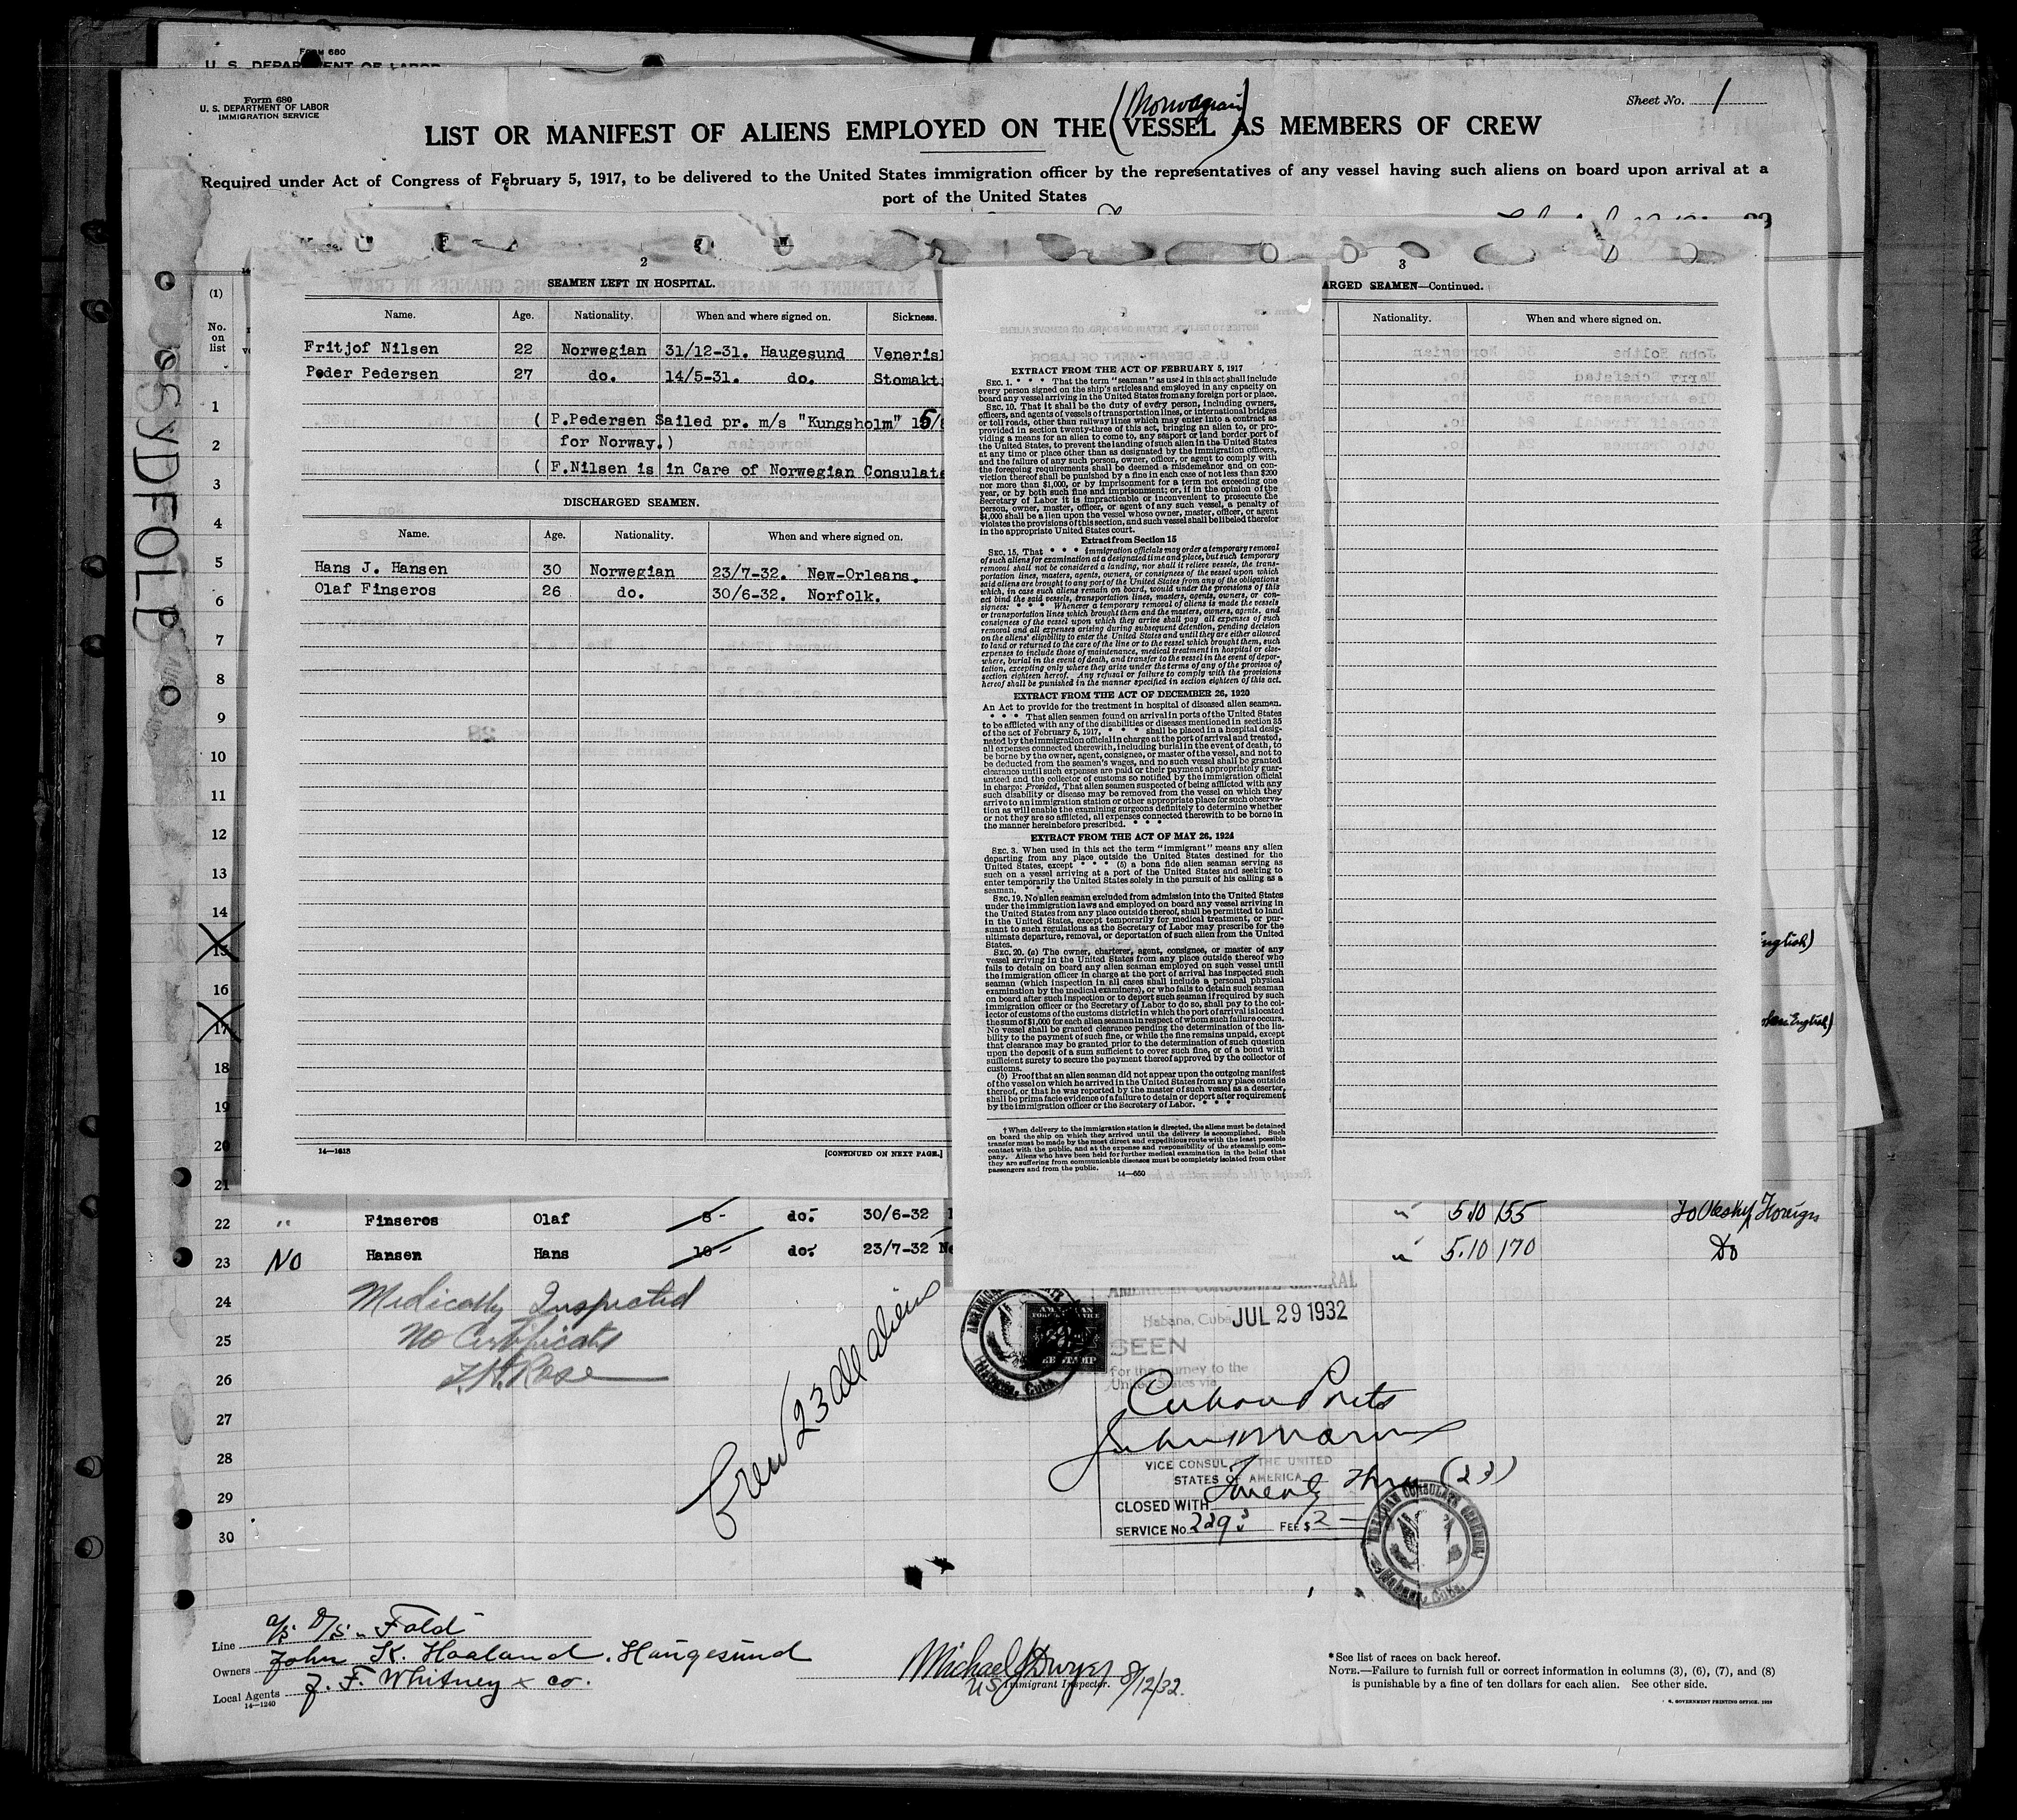 Form 680
U. S. DEPARTMENT OF LABOR
Form 680
U. S. DEPARTMENT OF LABOR
IMMIGRATION SERVICE
Sheet No. 1
(Norwegian)
LIST OR MANIFEST OF ALIENS EMPLOYED ON THE VESSEL AS MEMBERS OF CREW
Required under Act of Congress of February 5, 1917, to be delivered to the United States immigration officer by the representatives of any vessel having such aliens on board upon arrival at a
port of the United States
SYDFOLD
(1)
No.
on
list
1
2
3
4
5
6
7
8
9
10
11
12
13
14
15
16
17
18
19
20
21
2
SEAMEN LEFT IN HOSPITAL.
Name. Age. Nationality. When and where signed on. Sickness.
Fritjof Nilsen 22 Norwegian 31/12-31. Haugesund
Peder Pedersen 27 do. 14/5-31. do.
( P.Pedersen Sailed pr. m/s "Kungsholm"
for Norway.)
( F.Nilsen is in Care of Norwegian Consulate
DISCHARGED SEAMEN.
Name. Age. Nationality. When and where signed on.
Hans J. Hansen 30 Norwegian 23/7-32. New-Orleans.
Olaf Finseros 26 do. 30/6-32. Norfolk.
14—1613
[CONTINUED ON NEXT PAGE.]
3
ARGED SEAMEN—Continued.
Nationality. When and where signed on.
EXTRACT FROM THE ACT OF FEBRUARY 5, 1917
SEC. 1. * * * That the term "seaman" as used in this act shall include
every person signed on the ship's articles and employed in any capacity on
board any vessel arriving in the United States from any foreign port or place.
SEC. 10. That it shall be the duty of every person, including owners,
officers, and agents of vessels of transportation lines, or international bridges
or toll roads, other than railway lines which may enter into a contract as
provided in section twenty-three of this act, bringing an alien to, or pro-
viding a means for an alien to come to, any seaport or land border port of
the United States, to prevent the landing of such alien in the United States
at any time or place other than as designated by the immigration officers,
and the failure of any such person, owner, officer, or agent to comply with
the foregoing requirements shall be deemed a misdemeanor and on con-
viction thereof shall be punished by a fine in each case of not less than $200
nor more than $1,000, or by imprisonment for a term not exceeding one
year, or by both such fine and imprisonment; or, if in the opinion of the
Secretary of Labor it is impracticable or inconvenient to prosecute the
person, owner, master, officer, or agent of any such vessel, a penalty of
$1,000 shall be a lien upon the vessel whose owner, master, officer, or agent
violates the provisions of this section, and such vessel shall be libeled therefor
in the appropriate United States court.
Extract from Section 15
SEC. 15. That * * * immigration officials may order a temporary removal
of such aliens for examination at a designated time and place, but such temporary
removal shall not be considered a landing, nor shall it relieve vessels, the trans-
portation lines, masters, agents, owners, or consignees of the vessel upon which
said aliens are brought to any port of the United States from any of the obligations
which, in case such aliens remain on board, would under the provisions of this
act bind the said vessels, transportation lines, masters, agents, owners, or con-
signees: * * * Whenever a temporary removal of aliens is made the vessels
or transportation lines which brought them and the masters, owners, agents, and
consignees of the vessel upon which they arrive shall pay all expenses of such
removal and all expenses arising during subsequent detention, pending decision
on the aliens' eligibility to enter the United States and until they are either allowed
to land or returned to the care of the line or to the vessel which brought them, such
expenses to include those of maintenance, medical treatment in hospital or else-
where, burial in the event of death, and transfer to the vessel in the event of depor-
tation, excepting only where they arise under the terms of any of the provisos of
section eighteen hereof. Any refusal or failure to comply with the provisions
hereof shall be punished in the manner specified in section eighteen of this act.
EXTRACT FROM THE ACT OF DECEMBER 26, 1920
An Act to provide for the treatment in hospital of diseased alien seamen.
* * * That alien seamen found on arrival in ports of the United States
to be afflicted with any of the disabilities or diseases mentioned in section 35
of the act of February 5, 1917, * * * shall be placed in a hospital desig-
nated by the immigration official in charge at the port of arrival and treated,
all expenses connected therewith, including burial in the event of death, to
be borne by the owner, agent, consignee, or master of the vessel, and not to
be deducted from the seamen's wages, and no such vessel shall be granted
clearance until such expenses are paid or their payment appropriately guar-
anteed and the collector of customs so notified by the immigration official
in charge: Provided, That alien seamen suspected of being afflicted with any
such disability or disease may be removed from the vessel on which they
arrive to an immigration station or other appropriate place for such observa-
tion as will enable the examining surgeons definitely to determine whether
or not they are so afflicted, all expenses connected therewith to be borne in
the manner hereinbefore prescribed. * * *
EXTRACT FROM THE ACT OF MAY 26, 1924
SEC. 3. When used in this act the term "immigrant" means any alien
departing from any place outside the United States destined for the
United States, except * * * (5) a bona fide alien seaman serving as
such on a vessel arriving at a port of the United States and seeking to
enter temporarily the United States solely in the pursuit of his calling as a
seaman. * * *
SEC. 19. No alien seaman excluded from admission into the United States
under the immigration laws and employed on board any vessel arriving in
the United States from any place outside thereof, shall be permitted to land
in the United States, except temporarily for medical treatment, or pur-
suant to such regulations as the Secretary of Labor may prescribe for the
ultimate departure, removal, or deportation of such alien from the United
States.
SEC. 20. (a) The owner, charterer, agent, consignee, or master of any
vessel arriving in the United States from any place outside thereof who
fails to detain on board any alien seaman employed on such vessel until
the immigration officer in charge at the port of arrival has inspected such
seaman (which inspection in all cases shall include a personal physical
examination by the medical examiners), or who fails to detain such seaman
on board after such inspection or to deport such seaman if required by such
immigration officer or the Secretary of Labor to do so, shall pay to the col-
lector of customs of the customs district in which the port of arrival is located
the sum of $1,000 for each alien seaman in respect of whom such failure occurs.
No vessel shall be granted clearance pending the determination of the lia-
bility to the payment of such fine, or while the fine remains unpaid, except
that clearance may be granted prior to the determination of such question
upon the deposit of a sum sufficient to cover such fine, or of a bond with
sufficient surety to secure the payment thereof approved by the collector of
customs.
(b) Proof that an alien seaman did not appear upon the outgoing manifest
of the vessel on which he arrived in the United States from any place outside
thereof, or that he was reported by the master of such vessel as a deserter,
shall be prima facie evidence of a failure to detain or deport after requirement
by the immigration officer or the Secretary of Labor. * * *
† When delivery to the immigration station is directed, the aliens must be detained
on board the ship on which they arrived until the delivery is accomplished. Such
transfer must be made by the most direct and expeditious route with the least possible
contact with the public, and at the expense and responsibility of the steamship com-
pany. Aliens who have been held for further medical examination in the belief that
they are suffering from communicable diseases must be completely isolated from other
passengers and from the public.
14—660
22 " Finseros Olaf 8- do.- 30/6-32 5.10 155
23 No Hansen Hans 10- do.- 23/7-32 5.10 170 Do
24
25
26
27
28
29
30
Medically Inspected
No Certificate
Crew 23 all aliens
AMERICAN CONSULATE GENERAL
Habana, Cuba JUL 29 1932
SEEN
for the journey to the
United States via
Cuban Ports
VICE CONSUL OF THE UNITED
STATES OF AMERICA
CLOSED WITH Twenty three (23)
SERVICE No. FEE $ 2-
AMERICAN CONSULATE GENERAL
Habana, Cuba.
Line A/S D/S "Fold"
Owners John K. Haaland, Haugesund
Local Agents J. F. Whitney & co.
14—1240
Michael J Dwyer 8/12/32.
US Immigrant Inspector.
* See list of races on back hereof.
NOTE.—Failure to furnish full or correct information in columns (3), (6), (7), and (8)
is punishable by a fine of ten dollars for each alien. See other side.
GOVERNMENT PRINTING OFFICE. 1929